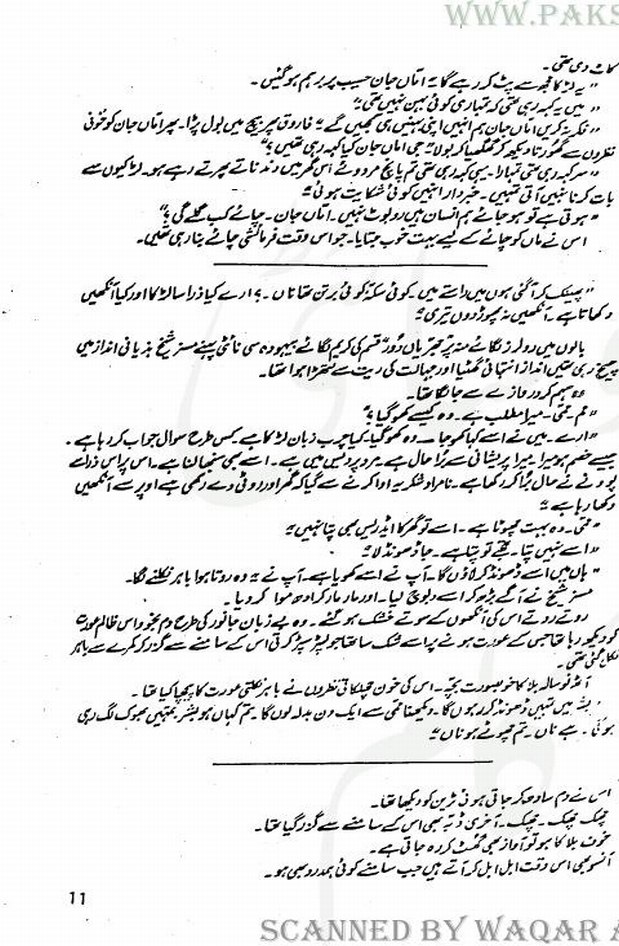 WWW.PAKS
کاٹ دی تھی۔
"یہ لڑکا مجھ سے پٹ کر رہے گا" اماں جان حسیب پر برہم ہو گئیں۔
"میں یہ کہہ رہی تھی کہ تمہاری کوئی بہن نہیں تھی"
"فکر نہ کریں اماں جان ہم انہیں اپنی بہنیں ہی سمجھیں گے" فاروق پھر بیچ میں بول پڑا۔ پھر اماں جان کو خونی
نظروں سے گھورتا دیکھ کر گھگھیا کر بولا "جی اماں جان کیا کہہ رہی تھیں؟"
"سر کہہ رہی تھی تمہارا۔ یہی کہہ رہی تھی تم پانچ مردوئے اس گھر میں دندناتے پھرتے رہے ہو۔ لڑکیوں سے
بات کرنا نہیں آتی تمہیں۔ خبردار انہیں کوئی شکایت ہوئی"
"ہوتی ہے تو ہو جائے ہم انسان ہیں روبوٹ نہیں۔ اماں جان۔ چائے کب ملے گی؟"
اس نے ماں کو چائے کے لیے بہت خوب جتایا۔ جو اس وقت فرمائشی چائے بنا رہی تھیں۔
"پھینک کر آ گئی ہوں میں راستے میں۔ کوئی سکہ کوئی برتن تھا ناں۔ ارے کیا ذرا سا لڑکا اور کیا آنکھیں
دکھاتا ہے۔ آنکھیں نہ پھوڑ دوں تیری"
بالوں میں رولرز لگائے منہ پر جھریاں دور قسم کی کریم لگائے بیہودہ سی نائٹی پہنے مسز شیخ ہذیانی انداز میں
چیخ رہی تھیں انداز انتہائی گھٹیا اور جہالت کی ریت سے لتھڑا ہوا تھا۔
وہ سہم کر دروازے سے جا لگا تھا۔
"مم۔ ممی۔ میرا مطلب ہے۔ وہ کیسے کھو گیا؟"
"ارے۔ میں نے اسے کہا کھو جا۔ وہ کھو گیا۔ کیا چرب زبان لڑکا ہے کس طرح سوال جواب کر رہا ہے۔
جیسے خصم ہو میرا۔ میرا پریشانی سے برا حال ہے۔ مرد پردیس میں ہے۔ اسے بھی سنبھالنا ہے۔ اس پر اس ذرا سے
پودنے نے حال برا کر رکھا ہے۔ نامراد شکریہ ادا کرنے سے گیا کہ گھر اور روٹی دے رکھی ہے اوپر سے آنکھیں
دکھا رہا ہے"
"ممی۔ وہ بہت چھوٹا ہے۔ اسے تو گھر کا ایڈریس بھی پتا نہیں"
"اسے نہیں پتا۔ تجھے تو پتا ہے۔ جا ڈھونڈ لا"
"ہاں میں اسے ڈھونڈ کر لاؤں گا۔ آپ نے اسے کھویا ہے۔ آپ نے" وہ روتا ہوا باہر نکلنے لگا۔
مسز شیخ نے آگے بڑھ کر اسے دبوچ لیا۔ اور مار مار کر ادھ موا کر دیا۔
روتے روتے اس کی آنکھوں کے سوتے خشک ہو گئے۔ وہ بے زبان جانور کی طرح دم بخود اس ظالم عورت
کو دیکھ رہا تھا جس کے عورت ہونے پر اسے شک سا تھا جو لپڑ سپڑ کرتی اس کے سامنے سے گزر کر کمرے سے باہر
نکل گئی تھی۔
آٹھ نو سالہ بلا کا خوبصورت بچہ۔ اس کی خون چھلکاتی نظروں نے باہر نکلتی عورت کا پیچھا کیا تھا۔
میں تمہیں ڈھونڈ کر رہوں گا۔ دیکھنا ممی سے ایک دن بدلہ لوں گا۔ تم کہاں ہو بشر تمہیں بھوک لگ رہی
ہو گی۔ ہے ناں۔ تم چھوٹے ہو ناں"
اس نے دم سادھ کر جاتی ہوئی ٹرین کو دیکھا تھا۔
چھک چھک۔ چھک۔ آخری ڈبہ بھی اس کے سامنے سے گزر گیا تھا۔
خوف بلا کا ہو تو آواز بھی گھٹ کر رہ جاتی ہے۔
آنسو بھی اس وقت ابل ابل کر آتے ہیں جب سامنے کوئی ہمدرد بھی ہو۔
11
SCANNED BY WAQAR A